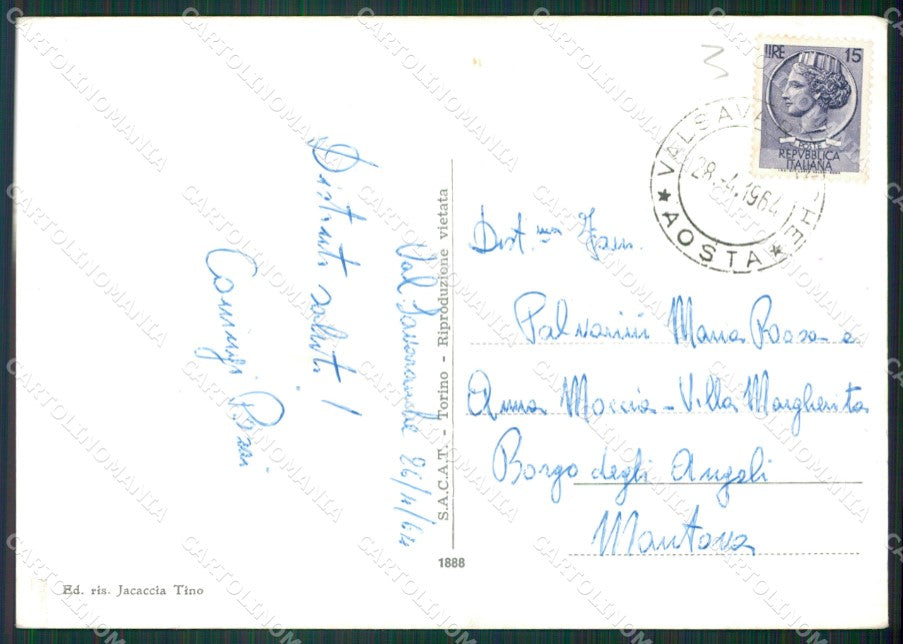 Distinti saluti
Rossi
Val Savaranche 26/4/64
S.A.C.A.T. - Torino - Riproduzione vietata
1888
Ed. ris. Jacaccia Tino
LIRE 15
POSTE
REPVBBLICA
ITALIANA
VALSAVARENCHE
28.-4.1964
★ AOSTA ★
Dist.me Fam.
Palvarini Maria Rosa e
Anna Moccia - Villa Margherita
Borgo degli Angeli
Mantova
CARTOLINOMANIA